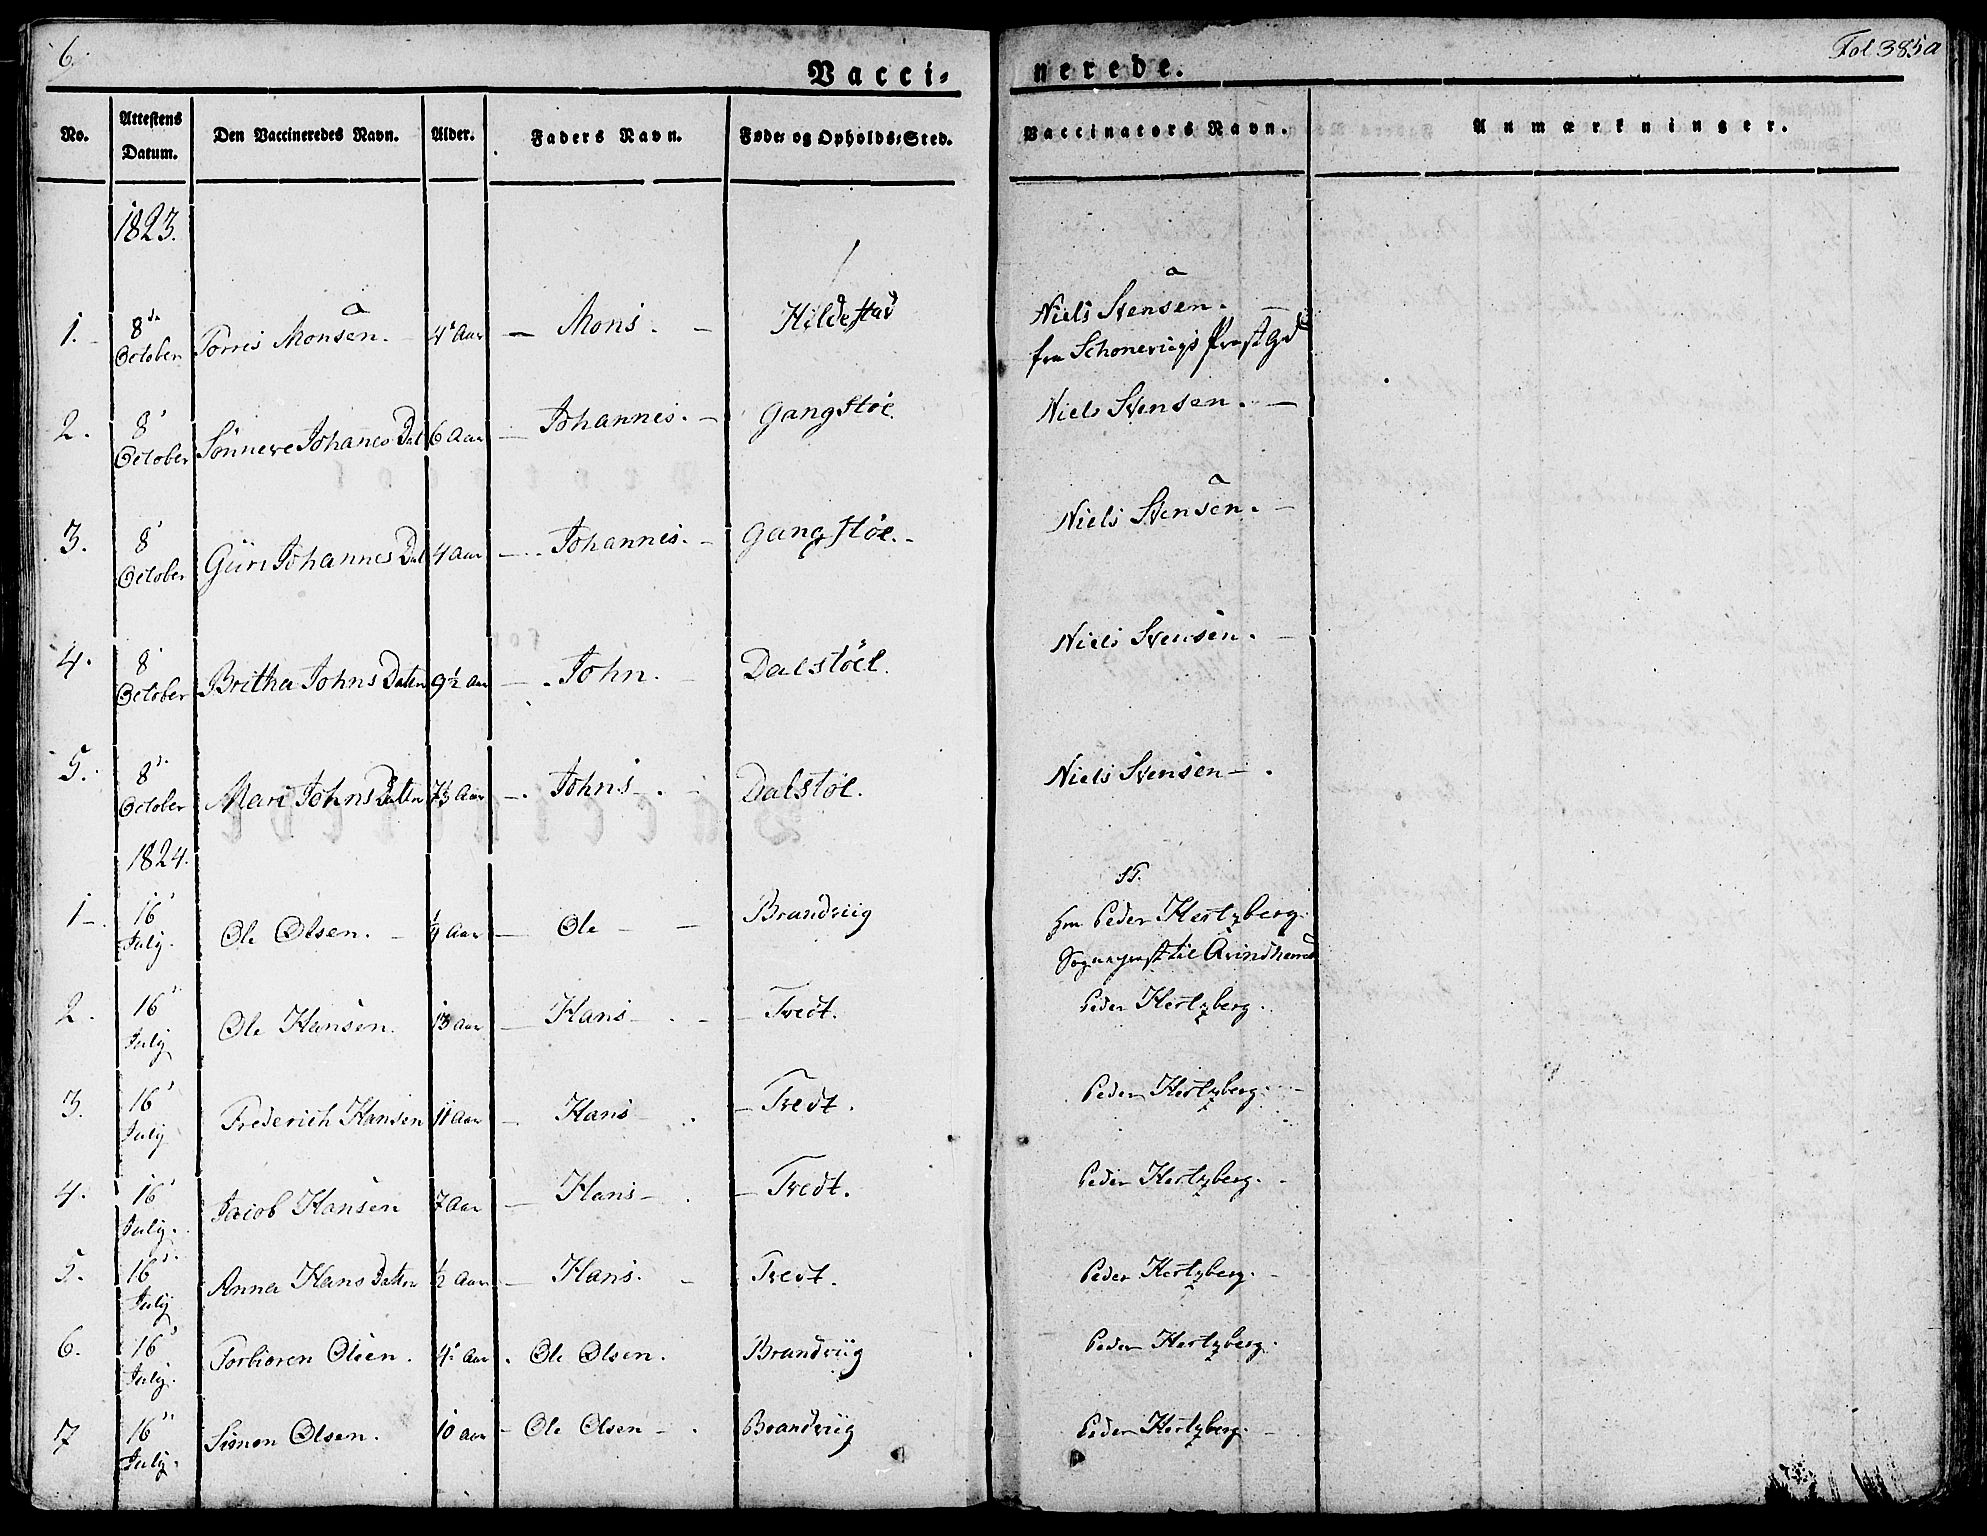 6.
Fol 385a
Vacci-
nerede.
No. Attestens Datum. Den Vaccineredes Navn. Alder. Faders Navn. Føde- og Opholds-Sted. Vaccinators Navn. Anmærkninger.
1823.
1. 8de October Torris Monsen. 4 Aar Mons. Hildestad Niels Stensen.
fra Schoneviigs Præstgd
2. 8 October Sønneve Johanes Dat 6 Aar Johannes. Gangstøe. Niels Stensen.
3. 8 October Guri Johannes Dat 4 Aar Johannes. Gangstøe. Niels Stensen.
4. 8 October Britha Johns Datter 9½ Aar John. Dalstøel. Niels Stensen.
5. 8 October Mari Johns Datter Aar Johns Dalstøl. Niels Stensen
1824.
S.T.
1 16 July. Ole Olsen. ¼ Aar Ole Brandviig Hrr Peder Hertzberg.
Sognepræst til Qvindherred
2. 16 July Ole Hansen. 13 Aar Hans Tvedt. Peder Hertzberg.
3. 16 July Frederich Hansen 11 Aar Hans Tvedt. Peder Hertzberg.
4. 16 July. Jacob Hansen 7 Aar Hans Tvedt. Peder Hertzberg.
5. 16 July Anna Hans Datter ½ Aar Hans. Tvedt. Peder Hertzberg.
6. 16 July. Torbiøren Olsen. 4 Aar Ole Olsen. Brandviig Peder Hertzberg.
7 16 July. Simon Olsen. 10 Aar Ole Olsen Brandviig Peder Hertzberg.